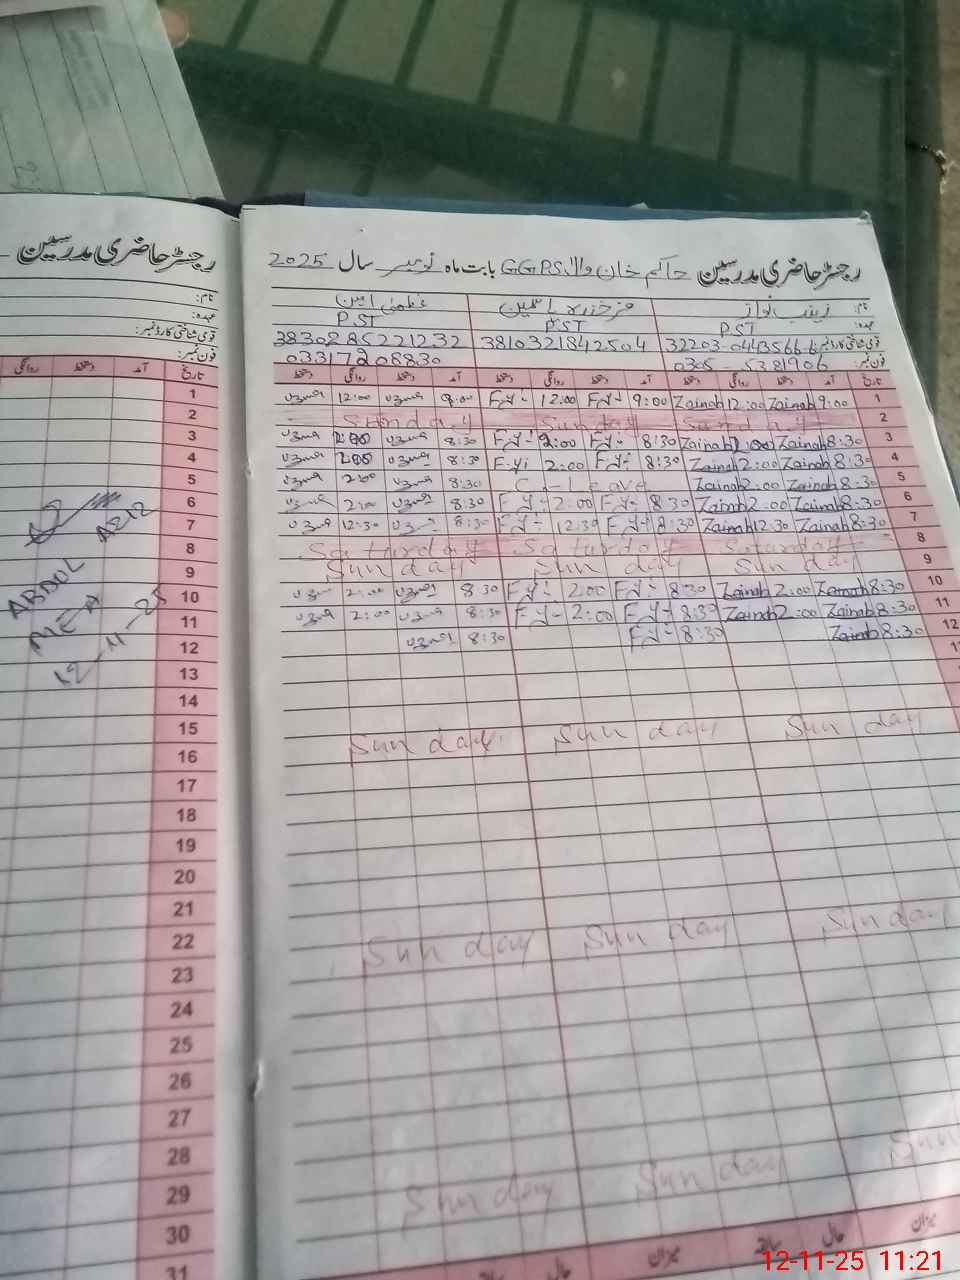 رجسٹر حاضری مدرسین حاکم خان والا GGPS بابت ماہ نومبر سال 2025
نام: زینب نواز
عظمیٰ امین
عہدہ: PST PST PST
قومی شناختی کارڈ نمبر: 3810321842504 3830285221232
فون نمبر: 0305-5381906 03317208830
تاریخ آمد دستخط روانگی دستخط آمد دستخط روانگی دستخط آمد دستخط روانگی دستخط
1 9:00 Zainab 12:00 Zainab 9:00 12:00 9:00 12:00
2 Sunday Sunday Sunday
3 8:30 Zainab 2:00 Zainab 8:30 2:00 8:30 2:00
4 8:30 Zainab 2:00 Zainab 8:30 2:00 8:30 2:00
5 8:30 Zainab 2:00 Zainab C-Leave 8:30 2:00
6 8:30 Zainab 2:00 Zainab 8:30 2:00 8:30 2:00
7 8:30 Zainab 12:30 Zainab 8:30 12:30 8:30 12:30
8 Saturday Saturday Saturday
9 Sunday Sunday Sunday
10 8:30 Zainab 2:00 Zainab 8:30 2:00 8:30 2:00
11 8:30 Zainab 2:00 Zainab 8:30 2:00 8:30 2:00
12 8:30 Zainab 8:30 8:30
Sun day Sun day Sun day
Sun day Sun day Sun day
Sun Sun day Sun day
میزان
رجسٹر حاضری مدرسین
نام:
عہدہ:
قومی شناختی کارڈ نمبر:
فون نمبر:
تاریخ آمد دستخط روانگی دستخط
1
2
3
4
5
6
7
8
9
10
11
12
13
14
15
16
17
18
19
20
21
22
23
24
25
26
27
28
29
30
31
ABDUL AZIZ
MEA
12-11-25
12-11-25 11:21